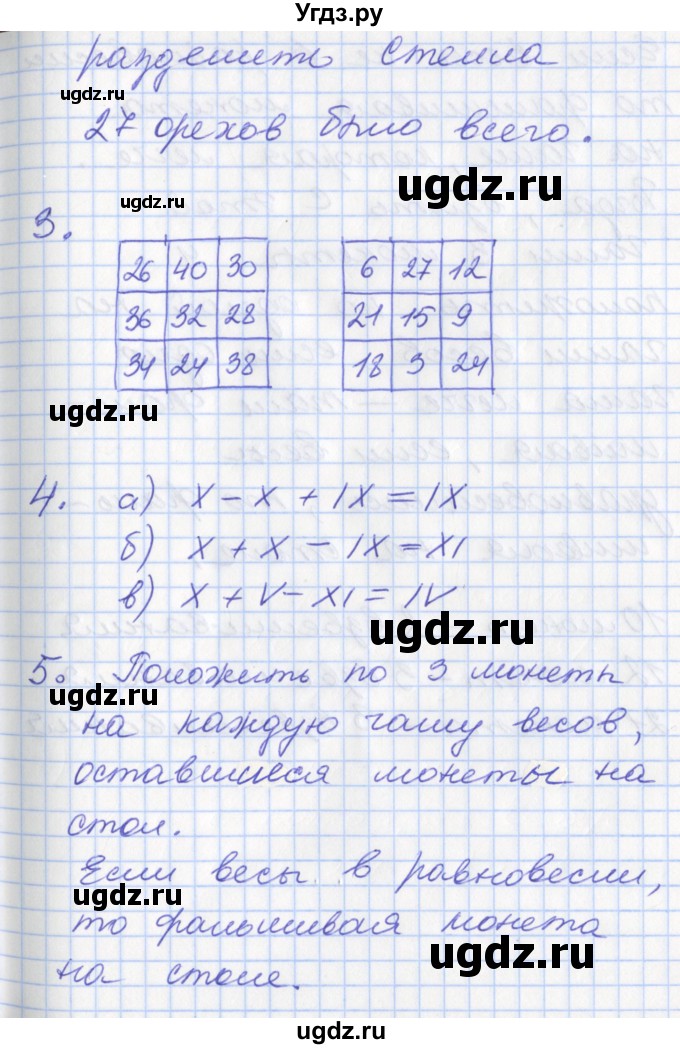 Угдз.ру
разделить Стелла
ugdz.ru
27 орехов было всего.
ugdz.ru
ugdz.ru
3.
26 40 30
36 32 28
34 24 38
6 27 12
21 15 9
18 3 24
ugdz.ru
4. а) X - X + IX = IX
б) X + X - IX = XI
в) X + V - XI = IV
ugdz.ru
5. Положить по 3 монеты
на каждую чашу весов,
ugdz.ru
оставшиеся монеты на
стол.
Если весы в равновесии,
ugdz.ru
то фальшивая монета
ugdz.ru
на столе.
ugdz.ru